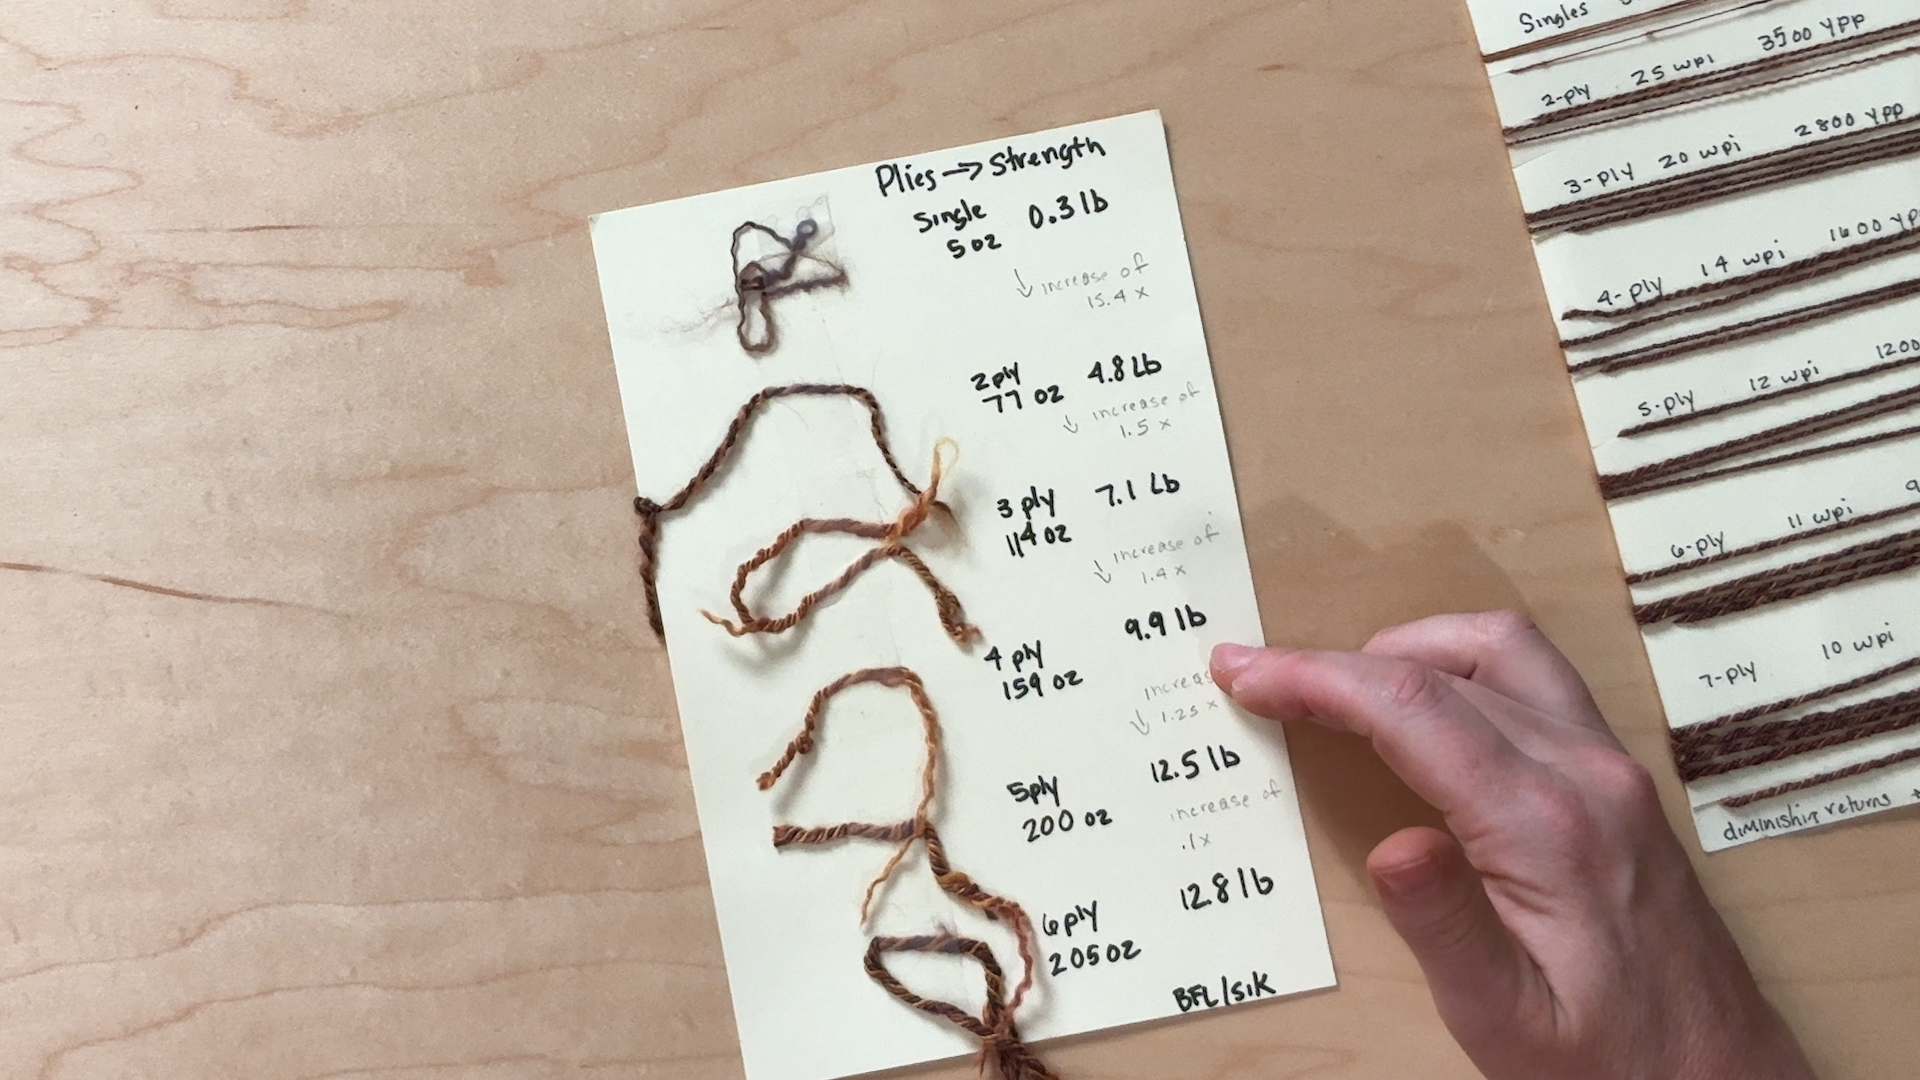 Plies → Strength
Single 0.3 lb
5 oz
↓ increase of
15.4 x
2ply 4.8 Lb
77 oz
↓ increase of
1.5 x
3 ply 7.1 Lb
114 oz
↓ increase of
1.4 x
4 ply 9.9 lb
159 oz
↓ 1.25 x
5ply 12.5 lb
200 oz
increase of
.1x
6ply 12.8 lb
205 oz
BFL/silk
Singles
2-ply 25 wpi 3500 YPP
3-ply 20 wpi 2800 YPP
4-ply 14 wpi 1600 YPP
5-ply 12 wpi 1200
6-ply 11 wpi 9
7-ply 10 wpi
diminishing returns